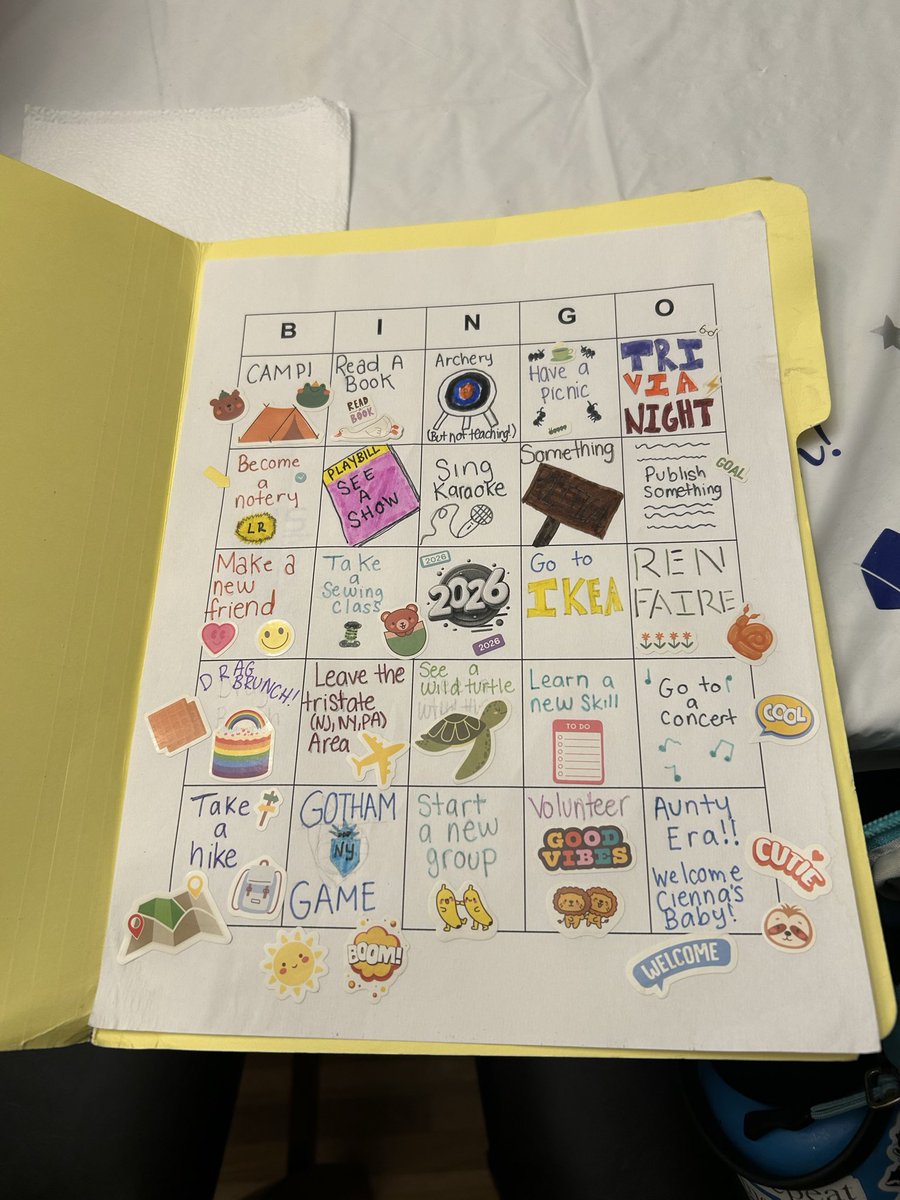 B I N G O
CAMP!
Read A
Book
READ
A
BOOK
Archery
(But not teaching!)
Have a
picnic
TRI
VIA
NIGHT
Become
a
notery
LR
PLAYBILL
SEE
A
SHOW
Sing
Karaoke
Something
Publish
something
GOAL
Make a
new
friend
Take
a
Sewing
Class
2026
2026
2026
Go to
IKEA
REN
FAIRE
DRAG
BRUNCH!
Leave the
tristate
(NJ, NY, PA)
Area
See a
wild turtle
Learn a
new Skill
TO DO
Go to
a
concert
COOL
Take
a
hike
GOTHAM
NY
GAME
Start
a new
group
Volunteer
GOOD
VIBES
Aunty
Era!!
Welcome
Cienna's
Baby!
CUTIE
BOOM!
WELCOME